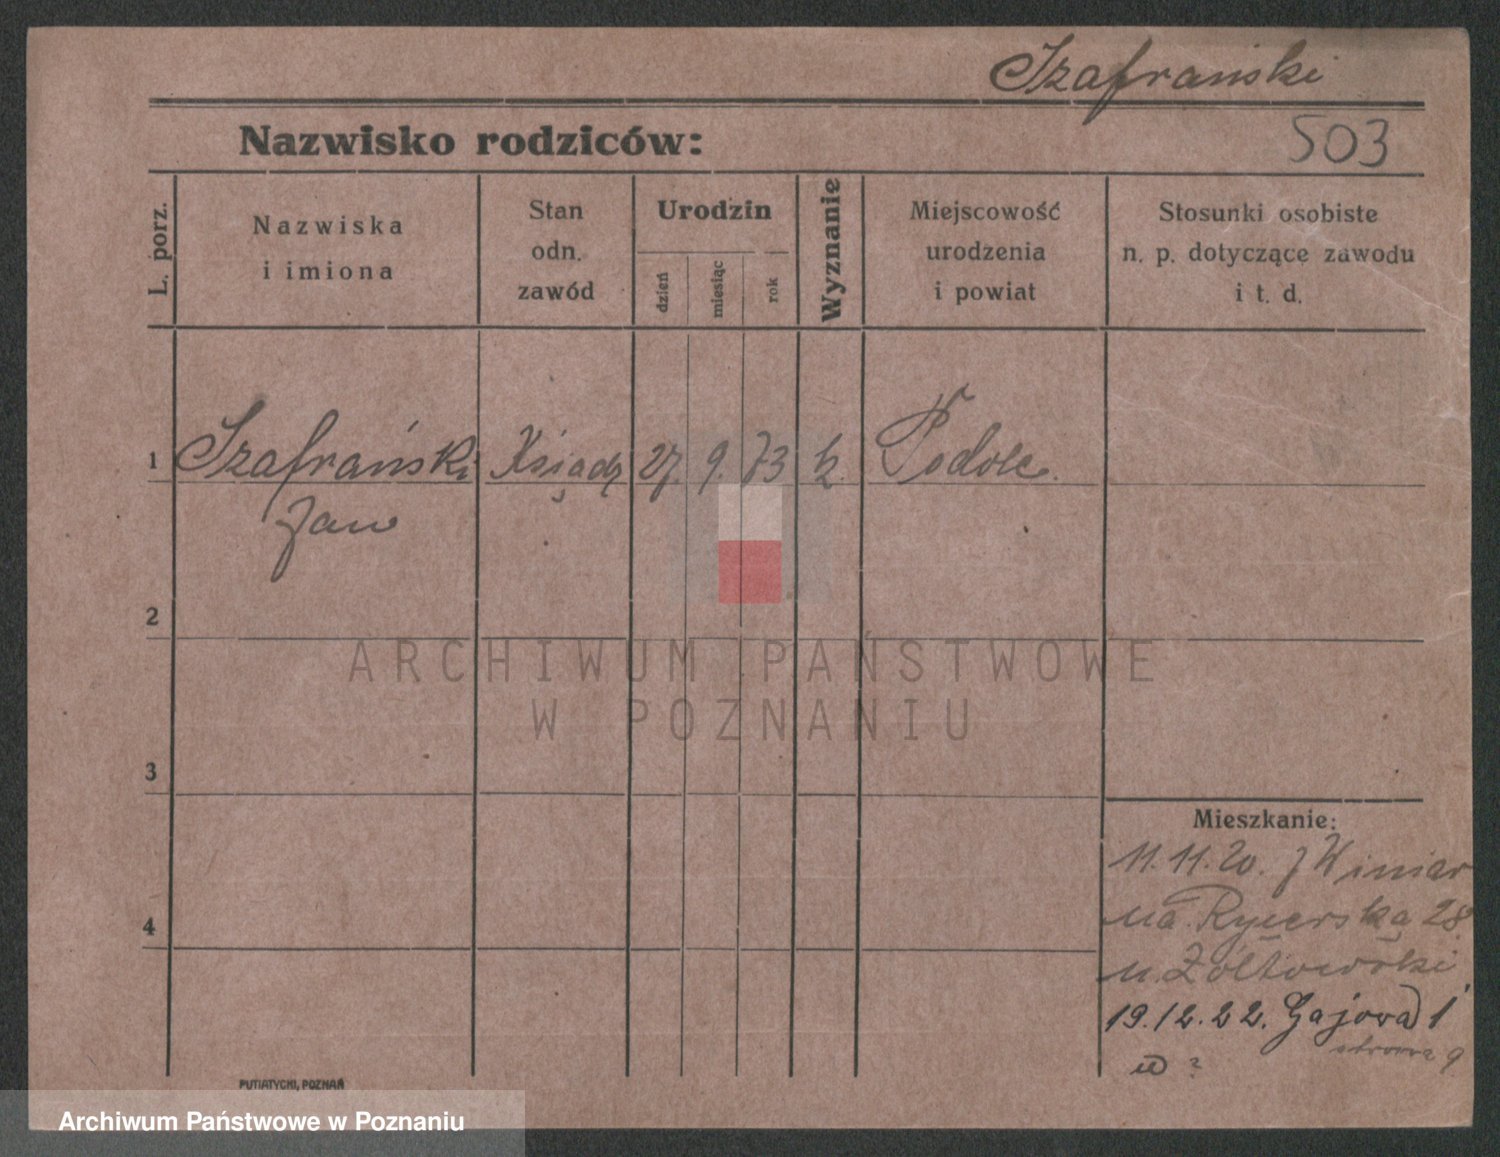 Szafrański
Nazwisko rodziców:
503
L. porz.
Nazwiska
i imiona
Stan
odn.
zawód
Urodzin
dzień
miesiąc
rok
Wyznanie
Miejscowość
urodzenia
i powiat
Stosunki osobiste
n. p. dotyczące zawodu
i t. d.
1 Szafrański Ksiądz 27. 9. 73 k. Podole.
Jan
2
ARCHIWUM PAŃSTWOWE
W POZNANIU
3
Mieszkanie:
11.11.20. z Winiar
na Rycerska 28
u. Żółtowski
4
19.12.22. Gajowa 1
strona 9
w ?
PUTIATYCKI, POZNAŃ
Archiwum Państwowe w Poznaniu